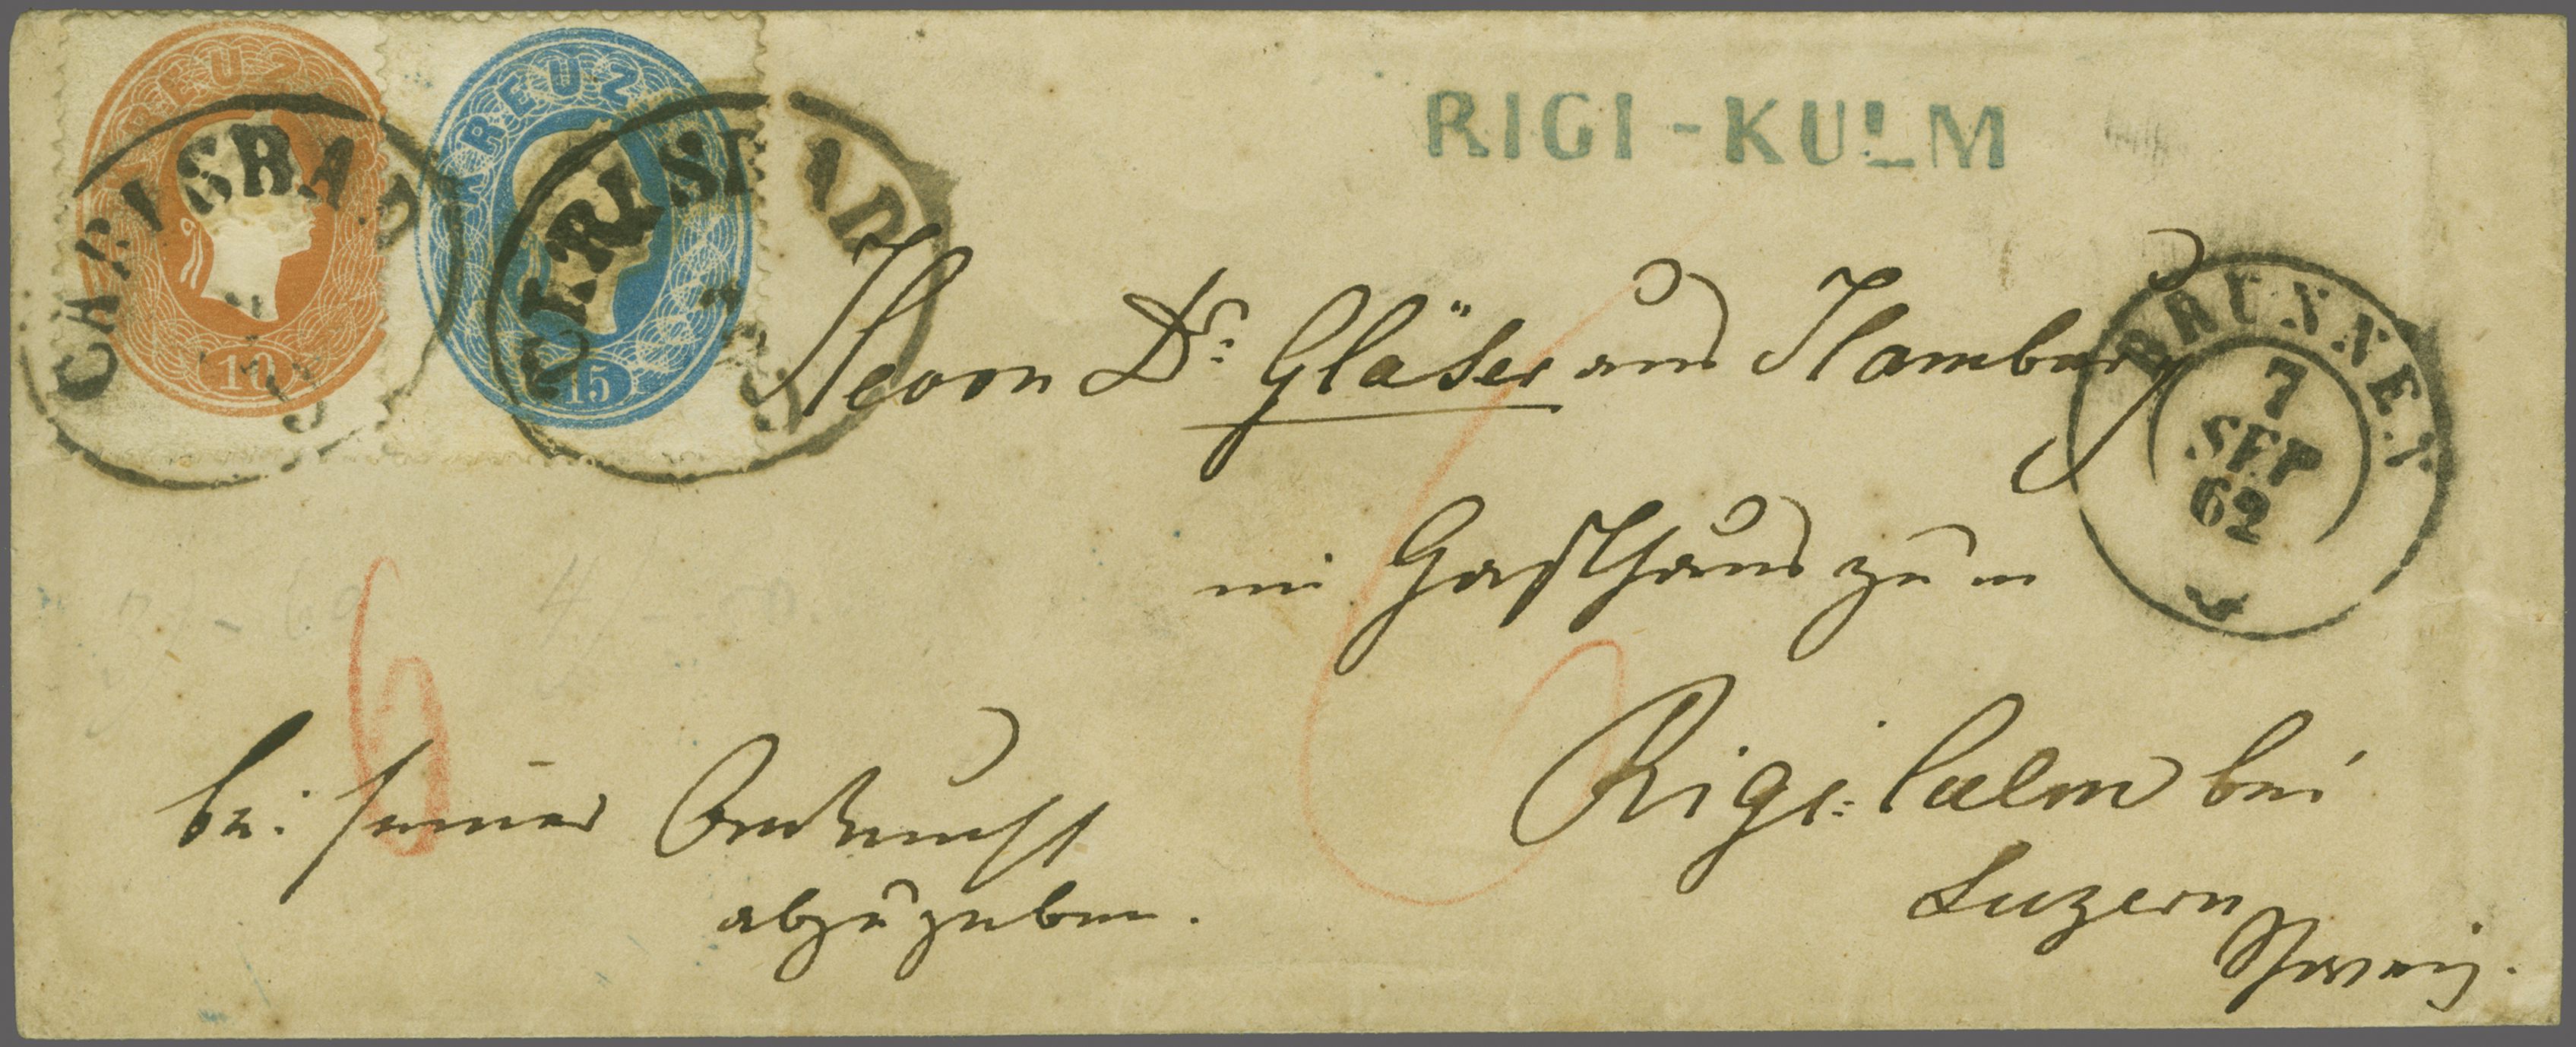 KREUZ
10
KREUZ
15
CARLSBAD
CARLSBAD
RIGI-KULM
BRUNNEN
7
SEP
62
Herrn Dr: Gläser aus Hamburg
im Gasthaus zum
Rigi-Culm bei
Luzern
Schweiz.
bei seiner Ankunft
abzugeben.
6